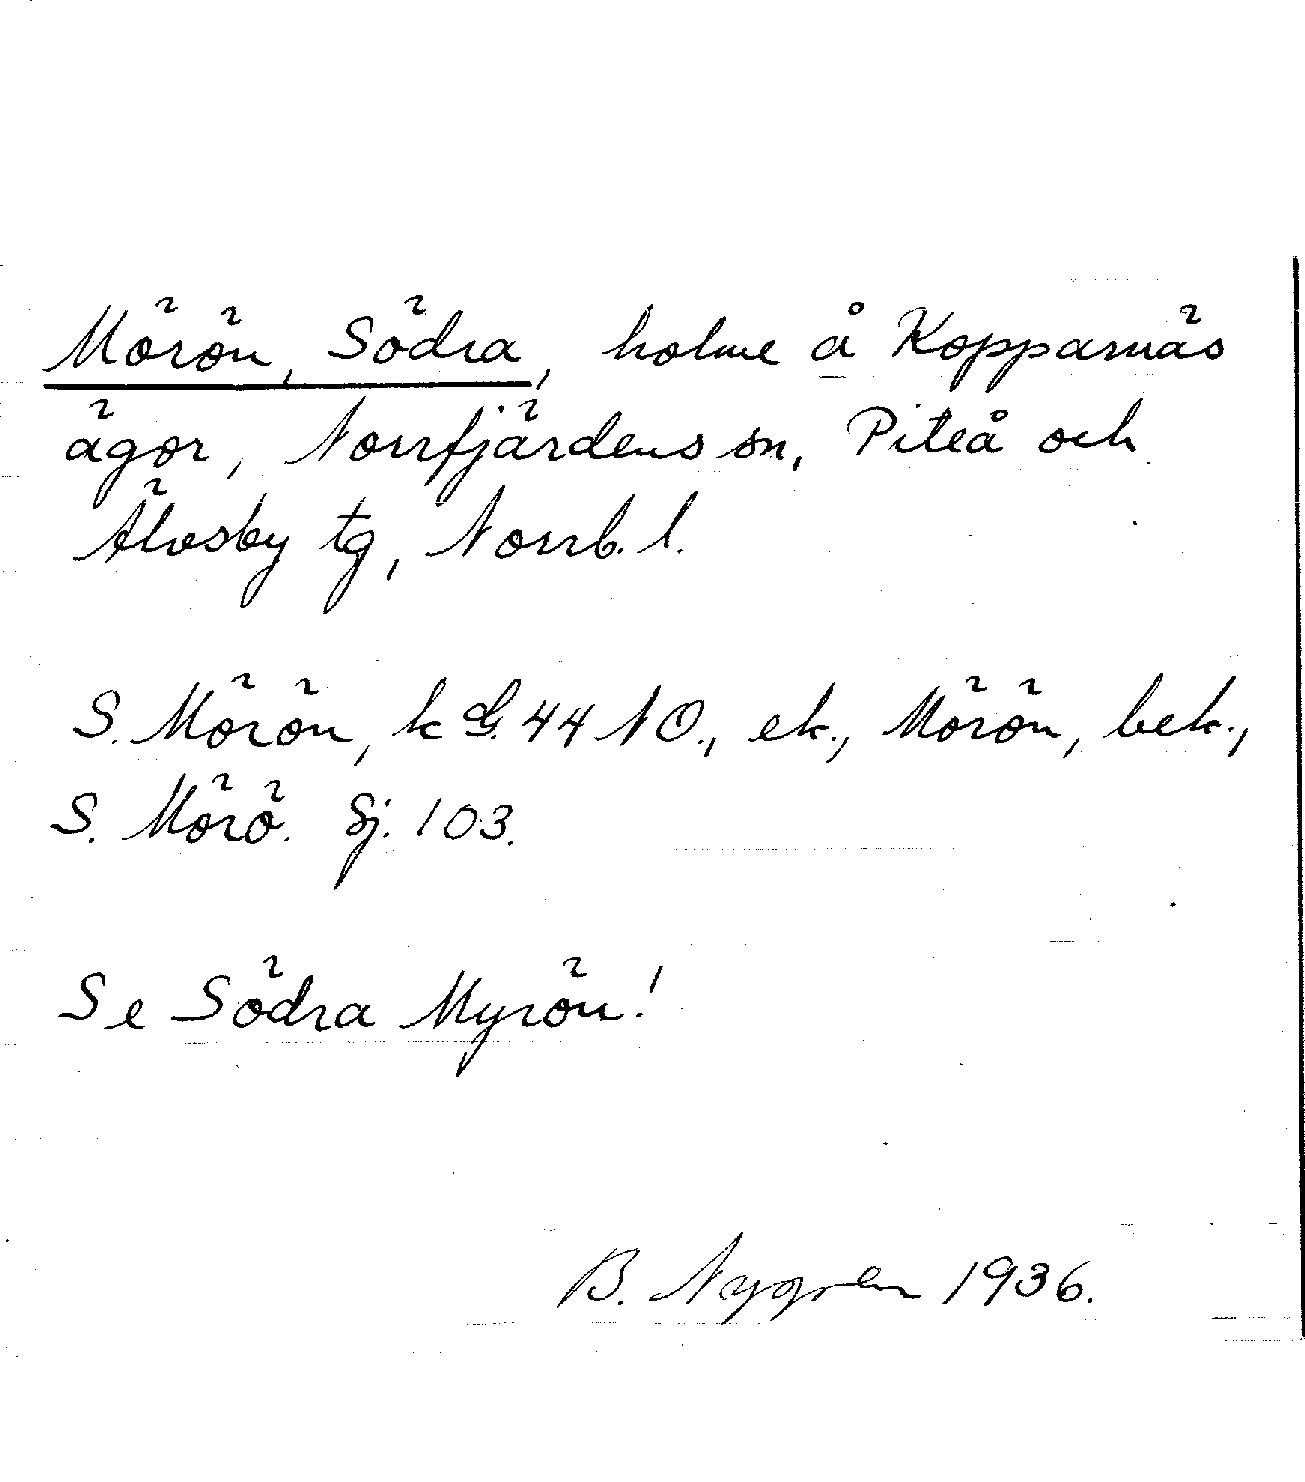 Mörön, Södra, holme å Kopparnäs
ägor, Norrfjärdens sn, Piteå och
Älvsby tg, Norrb. l.
S. Mörön, k G. 44 NO., ek., Mörön, bek.,
S. Mörö. Sj. 103.
Se Södra Myrön!
B. Nygren 1936.